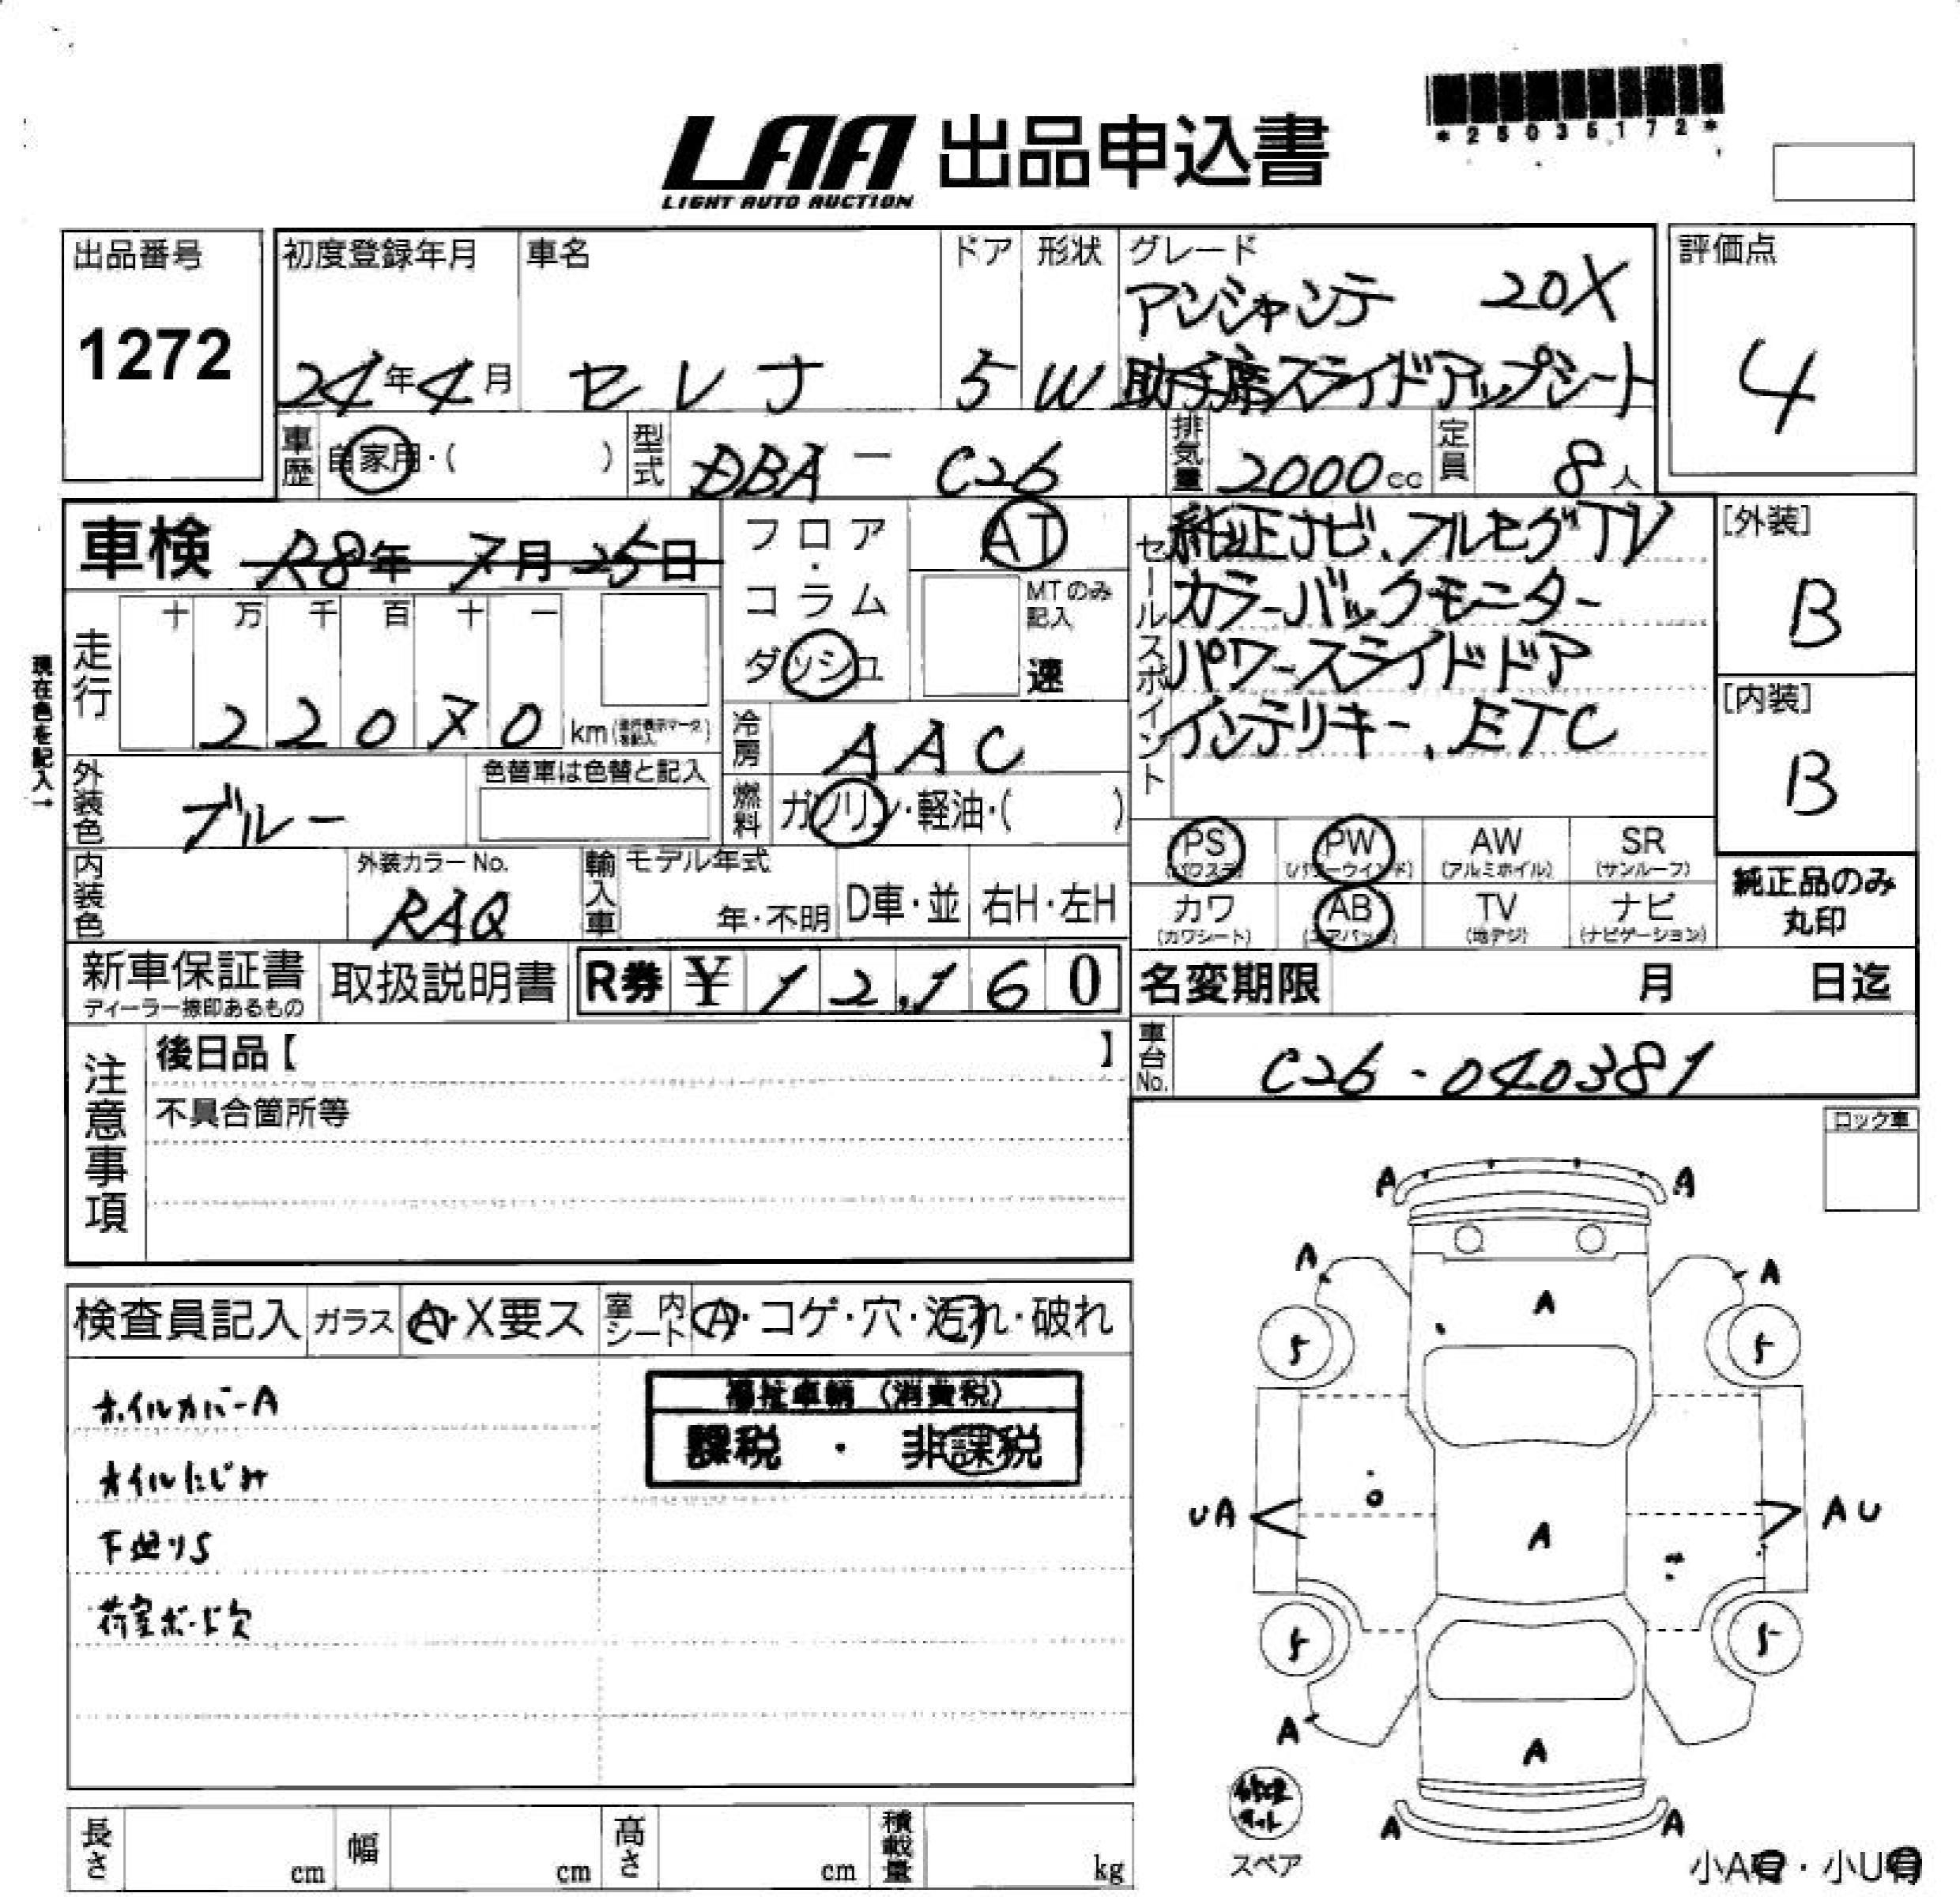 *25035172*
LAA 出品申込書
LIGHT AUTO AUCTION
出品番号
1272
初度登録年月
24年4月
車名
セレナ
ドア
5
形状
W
グレード
アンシャンテ 20X
助手席スライドアップシート
評価点
4
車歴
自家用・( )
型式
DBA - C26
排気量
2000cc
定員
8人
車検 R8年 7月 25日
フロア・コラム
ダッシュ
AT
MTのみ記入
速
セールスポイント
純正ナビ、フルセグTV
カラーバックモニター
パワースライドドア
インテリキー、ETC
[外装]
B
[内装]
B
現在色を記入→
走行
十 万 千 百 十 一
22070 km
冷房
AAC
外装色
ブルー
色替車は色替と記入
燃料
ガソリン・軽油・( )
PS
(パワステ)
PW
(パワーウインド)
AW
(アルミホイル)
SR
(サンルーフ)
カワ
(カワシート)
AB
(エアバッグ)
TV
(地デジ)
ナビ
(ナビゲーション)
純正品のみ
丸印
内装色
外装カラーNo.
RAQ
輸入車
モデル年式
年・不明
D車・並
右H・左H
新車保証書
ディーラー捺印あるもの
取扱説明書
R券 ¥12,160
名変期限 月 日迄
車台No.
C26-040381
注意事項
後日品【 】
不具合箇所等
ロック車
検査員記入
ガラス
A・X要ス
室内シート
A・コゲ・穴・汚れ・破れ
ホイルカバーA
オイルにじみ
下廻りS
荷室ボード欠
福祉車輌 (消費税)
課税 ・ 非課税
A A
A A
A
5 5
UA AU
A
5 5
A
A
A A
修理キット
スペア
小A有・小U有
長さ cm
幅 cm
高さ cm
積載量 kg